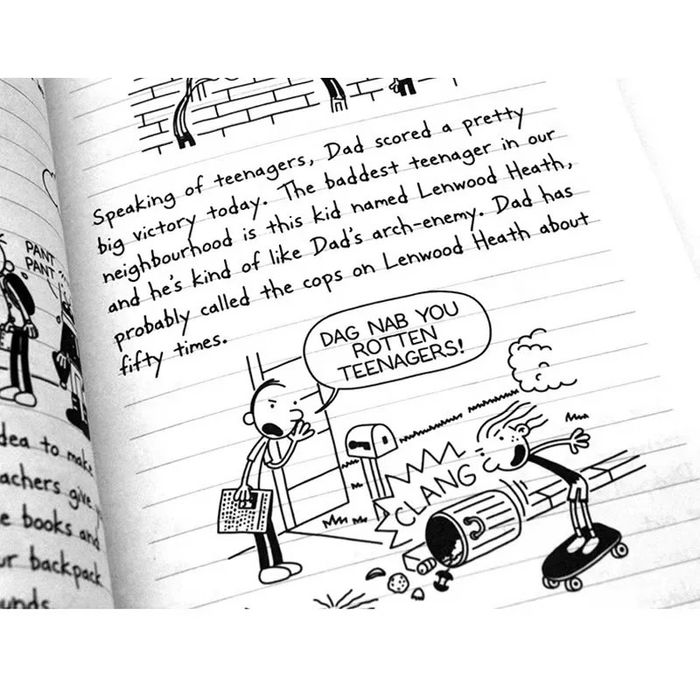 PANT
PANT
dea to make
achers give
e books and
ur backpack
unds
Speaking of teenagers, Dad scored a pretty
big victory today. The baddest teenager in our
neighbourhood is this kid named Lenwood Heath,
and he's kind of like Dad's arch-enemy. Dad has
probably called the cops on Lenwood Heath about
fifty times.
DAG NAB YOU
ROTTEN
TEENAGERS!
CLANG